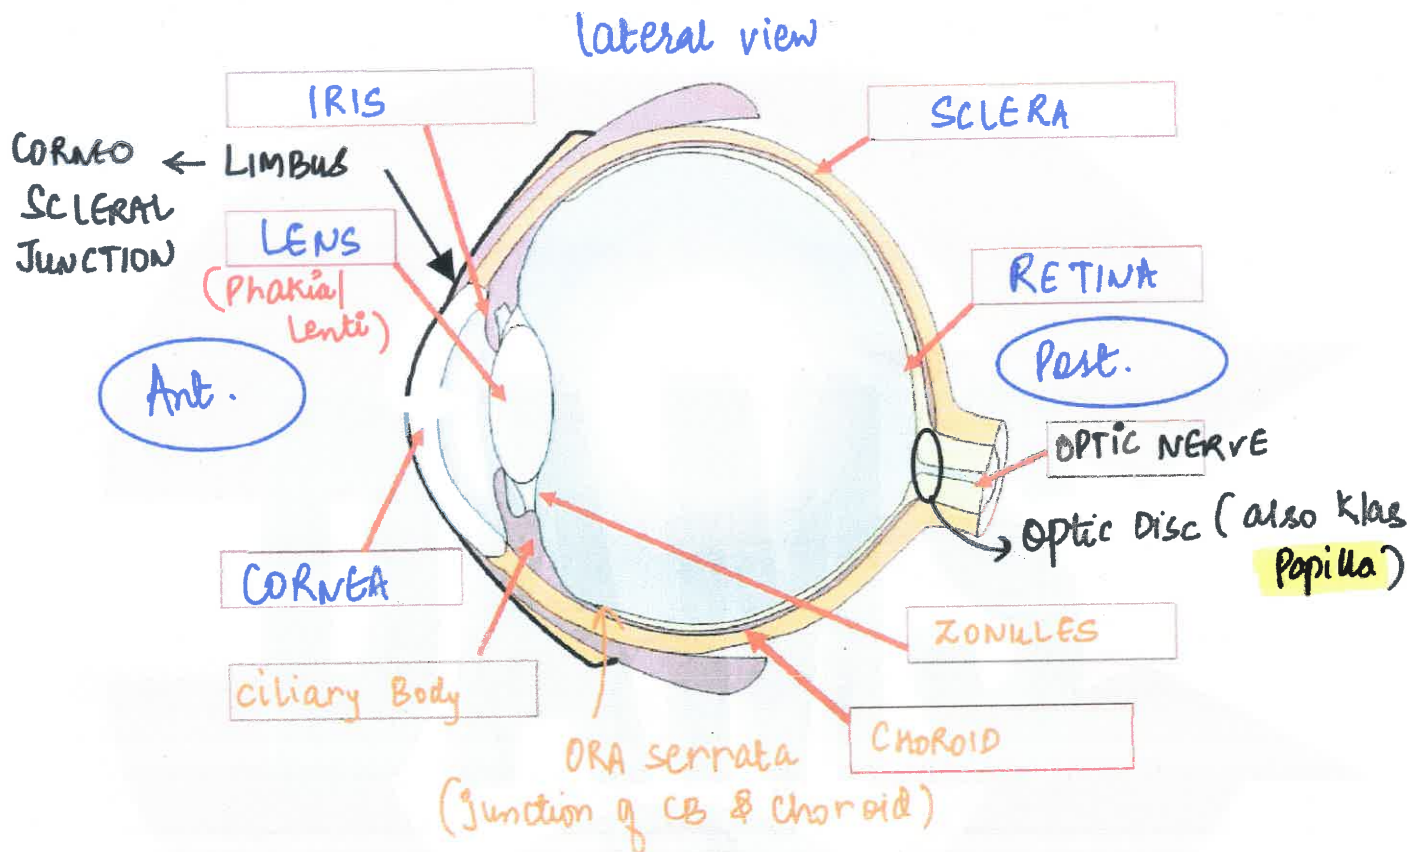 lateral view
IRIS
SCLERA
CORNEO ← LIMBUS
SCLERAL
JUNCTION
LENS
(Phakia/
Lenti)
RETINA
Ant.
Post.
OPTIC NERVE
Optic Disc (also k/as
Papilla)
CORNEA
ZONULES
Ciliary Body
CHOROID
ORA serrata
(junction of CB & Choroid)